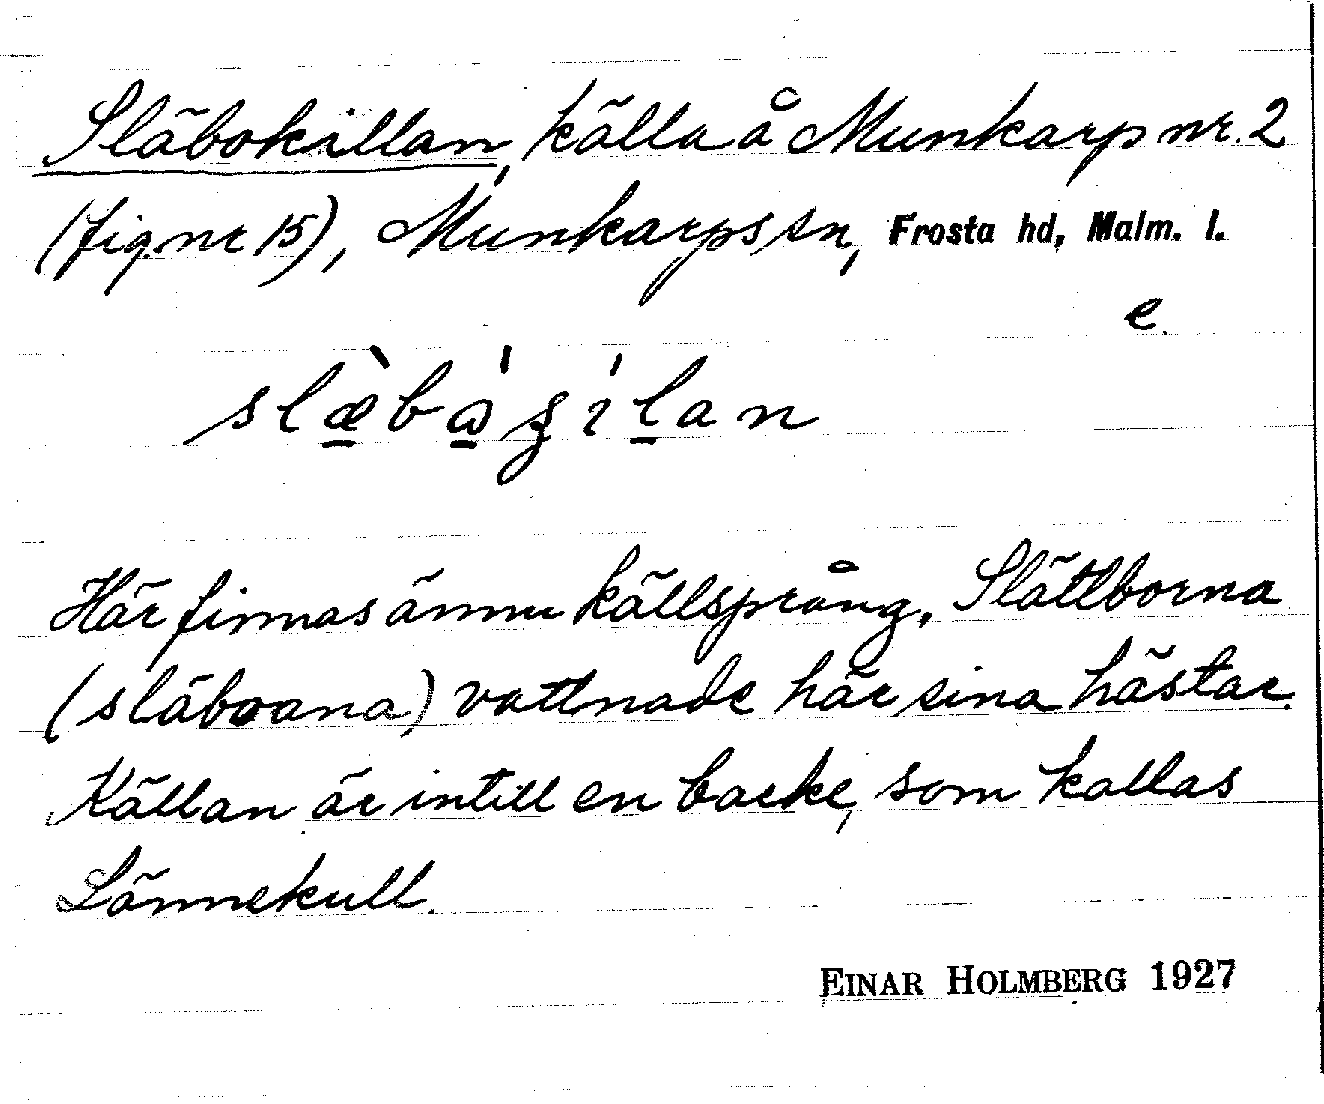 Släbokillan, källa å Munkarp nr. 2
(fig. nr 15), Munkarps sn, Frosta hd, Malm. l.
e.
slæ̀bɷ̀ʒɩ́lan
Här finnas ännu källsprång. Slättborna
(släboana) vattnade här sina hästar.
Källan är intill en backe, som kallas
Lännekull.
EINAR HOLMBERG 1927